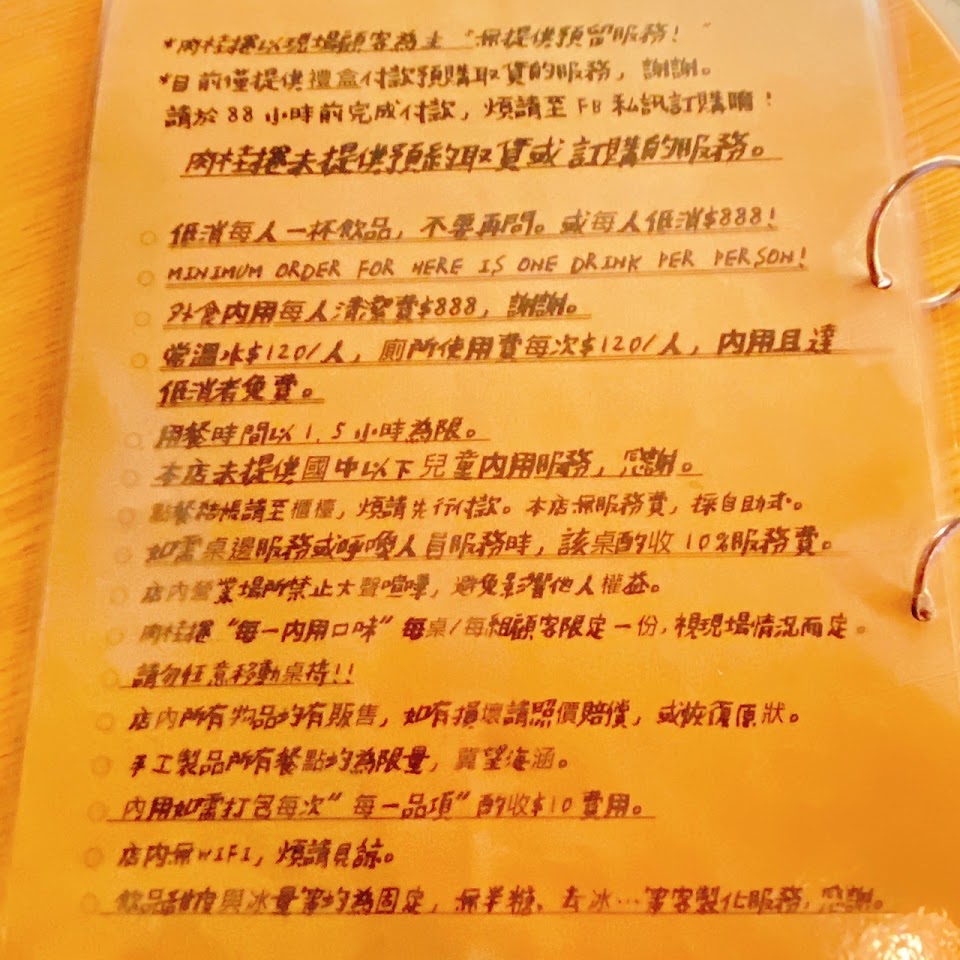 *肉桂捲以現場顧客為主 “無提供預留服務! ”
*目前僅提供禮盒付款預購取貨的服務, 謝謝。
請於 88 小時前完成付款, 煩請至 FB 私訊訂購唷!
肉桂捲未提供預約取貨或訂購的服務。
○ 低消每人一杯飲品, 不要再問。或每人低消$888!
○ MINIMUM ORDER FOR HERE IS ONE DRINK PER PERSON!
○ 外食內用每人清潔費$888, 謝謝。
○ 常溫水$120/人, 廁所使用費每次$120/人, 內用且達
低消者免費。
○ 用餐時間以 1.5 小時為限。
○ 本店未提供國中以下兒童內用服務, 感謝。
○ 點餐結帳請至櫃檯, 煩請先行付款。本店無服務費, 採自助式。
○ 如需桌邊服務或呼喚人員服務時, 該桌酌收 10%服務費。
○ 店內營業場所禁止大聲喧嘩, 避免影響他人權益。
○ 肉桂捲 “每一內用口味” 每桌/每組顧客限定一份, 視現場情況而定。
○ 請勿任意移動桌椅!!
○ 店內所有物品均有販售, 如有損壞請照價賠償, 或恢復原狀。
○ 手工製品所有餐點均為限量, 冀望海涵。
○ 內用如需打包每次” 每一品項” 酌收$10 費用。
○ 店內無WIFI, 煩請見諒。
○ 飲品甜度與冰量等均為固定, 無半糖、去冰…等客製化服務, 感謝。